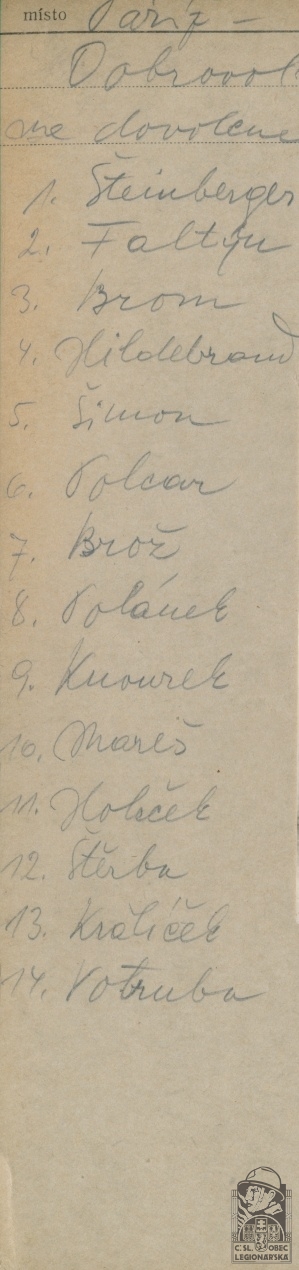 místo Paříž -
Dobrovol
na dovolené
1. Šteinberger
2. Faltýn
3. Brom
4. Hildebrand
5. Šimon
6. Polcar
7. Brož
8. Polánek
9. Knourek
10. Mareš
11. Holeček
12. Štěrba
13. Králíček
14. Votruba
Č. SL. OBEC
LEGIONÁŘSKÁ